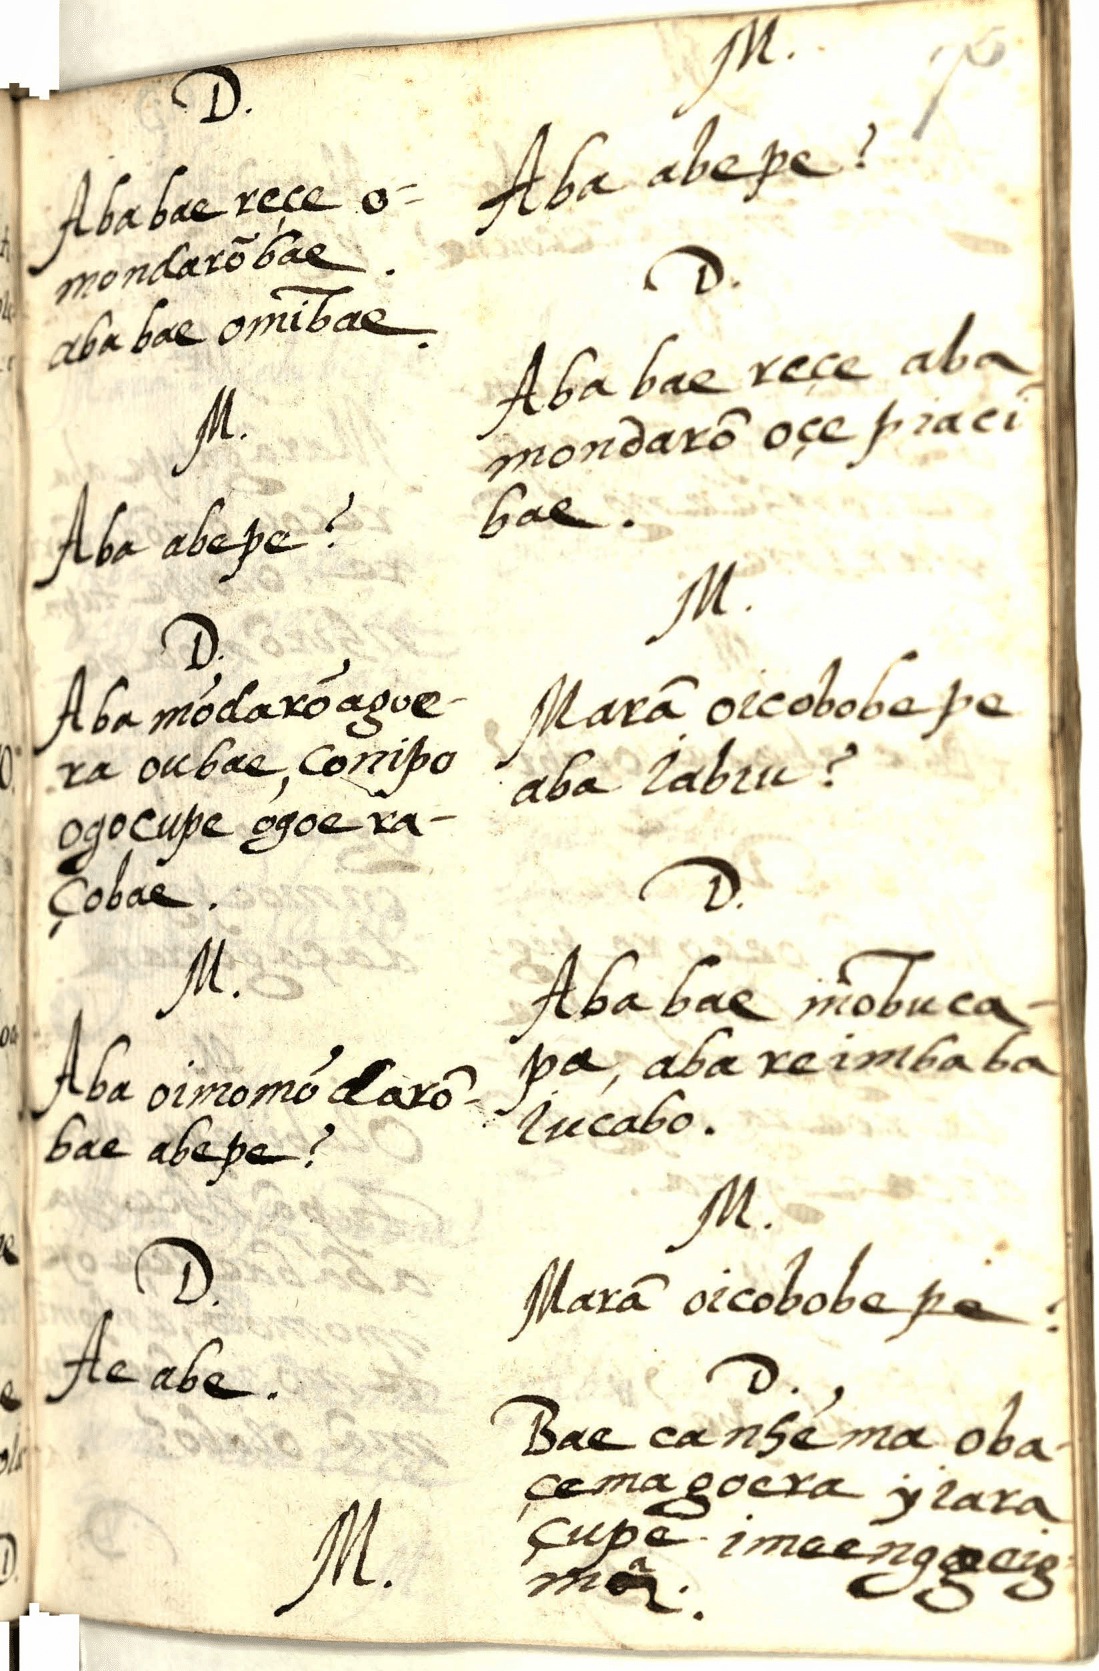 D.
Aba bae reçe o-
mondarõbae.
aba bae omĩbae.
M.
Aba abepe?
D.
Aba mõdarõ agoe-
ra oubae, conipo
ogocupe ogoe ra-
çobae.
M.
Aba oimomõdarõ-
bae abepe?
D.
Ae abe.
M.
M.
Aba abepe?
D.
Aba bae reçe aba
mondarõ oçe piaci
bae.
M.
Marã oicobobepe
aba iabiu?
D.
Aba bae mõbuca-
pa, aba reimbaba
iucabo.
M.
Marã oicobobepe?
D.
Bae canhéma oba-
çemagoera yiara
çupe imeenggeig-